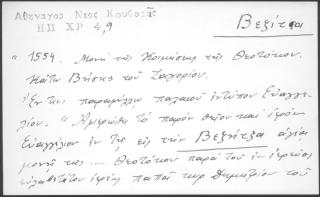 Αθηναγορ Νεος Κουβαρᾶς
ΗΠ ΧΡ 4,9
Βεζίτζα
" 1554. Μονὴ τῆς Κοιμήσεως τῆς Θεοτόκου.
Κάτω Βίτσης τοῦ Ζαγορίου.
Ἐν τῷ παραφύλλῳ παλαιοῦ ἐντύπου Εὐαγγε-
λίου. " Ἀφιερώθη τὸ παρὸν θεῖον καὶ ἱερὸν
Εὐαγγέλιον ἐν τῇ εἰς τὴν Βεζήτζα ἁγίᾳ
μονῇ τῆς ..... Θεοτόκου παρὰ τοῦ ἐν ἱερεῦσι
εὐλαβεστάτου ἱερέως παπᾶ κὺρ Δημητρίου τοῦ